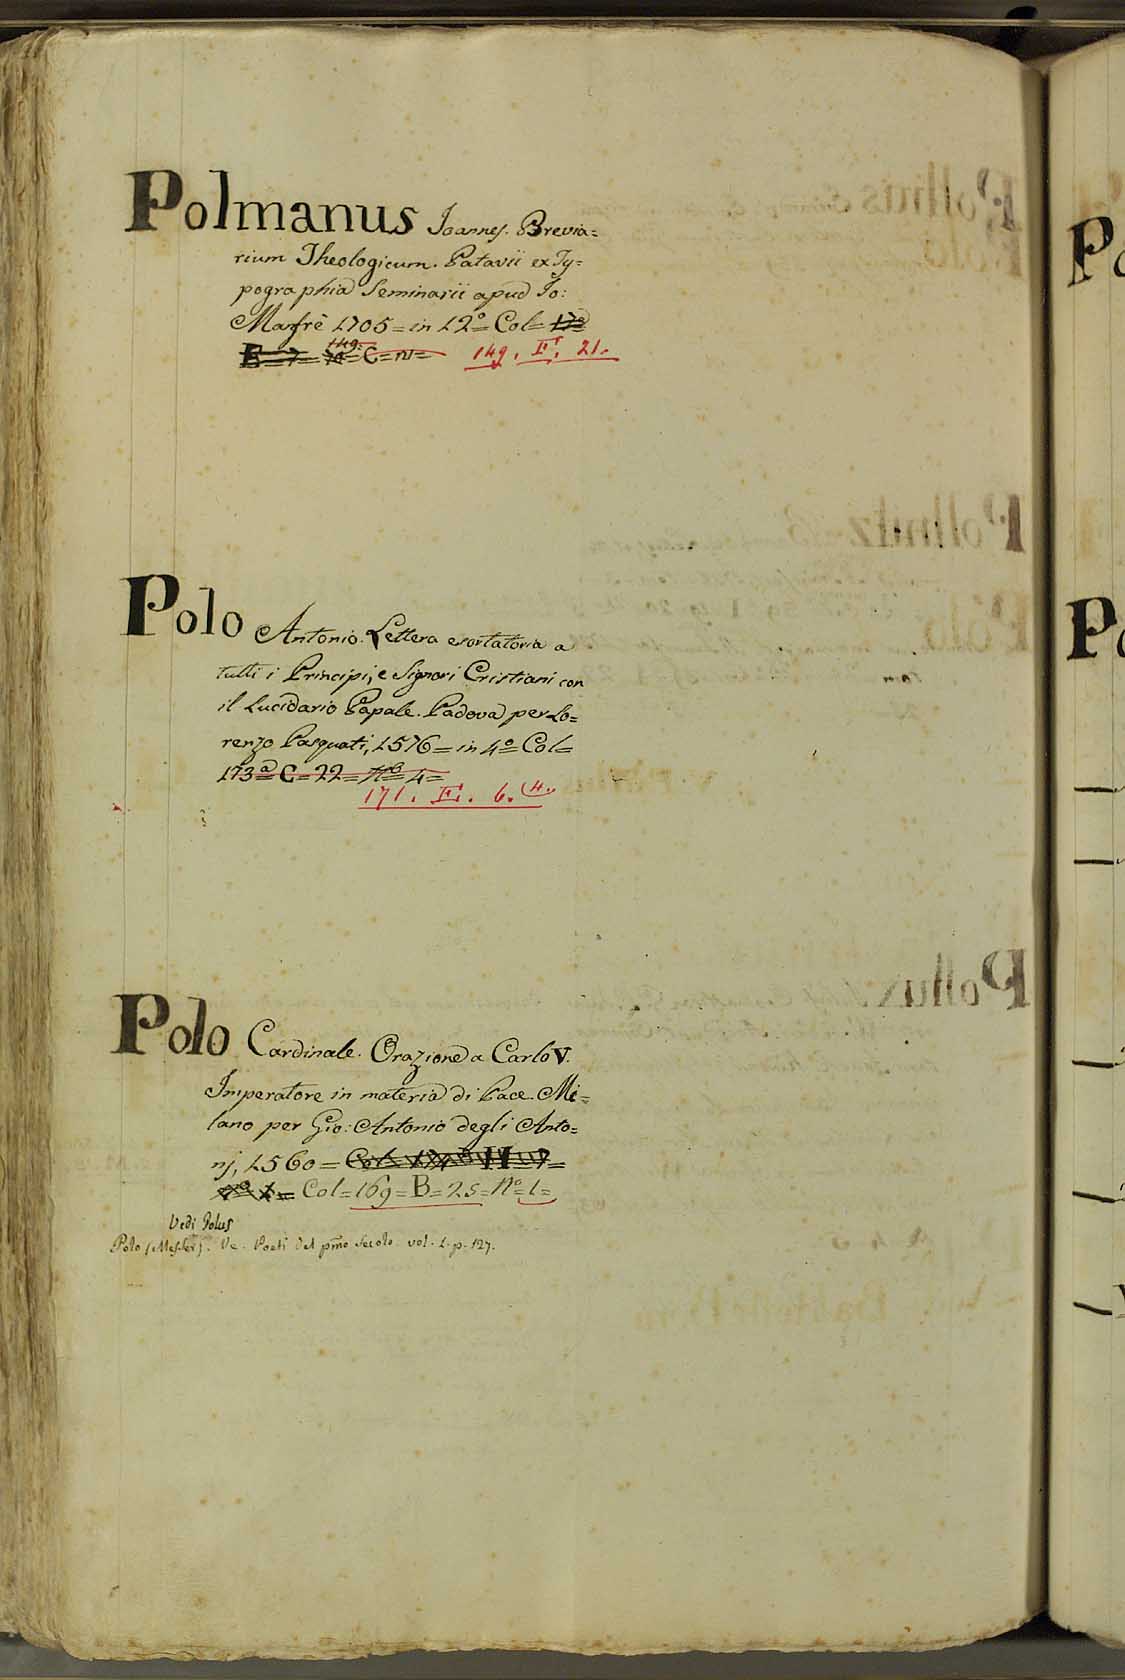 Polmanus Joannes. Brevia=
rium Theologicum. Patavii ex Ty=
pographia Seminarii apud Jo:
Manfrè 1705 = in 12º = Col=
149. E. 21.
Polo Antonio. Lettera esortatoria a
tutti i Principi, e Signori Cristiani con
il Lucidario Papale. Padova per Lo=
renzo Pasquati, 1576 = in 4º = Col=
173ª = C = 22 = Nº = 4 =
171. E. 6. (4.
Polo Cardinale. Orazione a Carlo V.
Imperatore in materia di Pace. Mi=
lano per Gio: Antonio degli Anto=
nj, 1560 =
Col = 169 = B = 25 = Nº = 1 =
Vedi Polus
Polo (Messer). Ve. Poeti del pmo Secolo. vol. 1. p. 127.